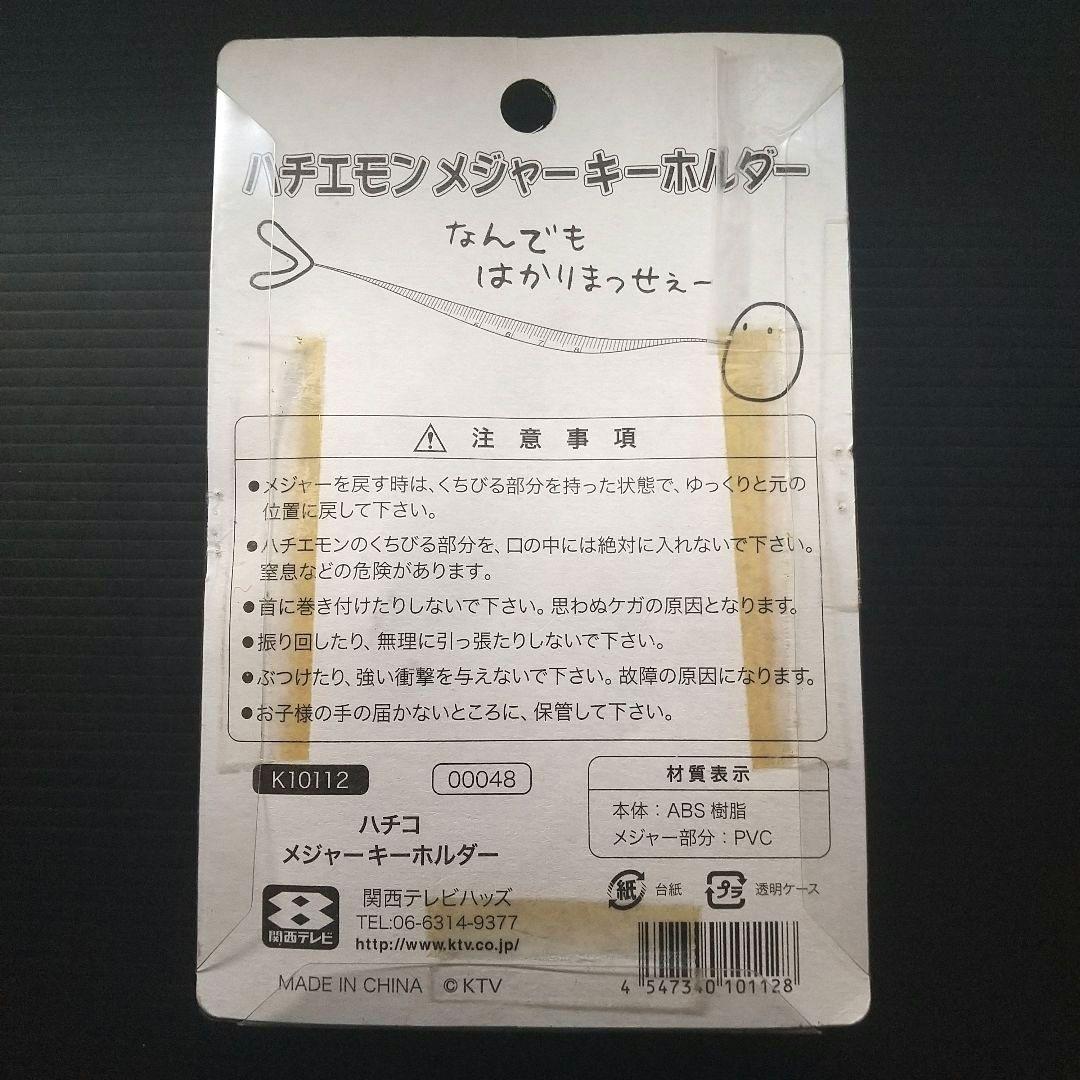 ハチエモン メジャー キーホルダー
なんでも
はかりまっせぇー
5 6 7 8
注意事項
●メジャーを戻す時は、くちびる部分を持った状態で、ゆっくりと元の
位置に戻して下さい。
●ハチエモンのくちびる部分を、口の中には絶対に入れないで下さい。
窒息などの危険があります。
●首に巻き付けたりしないで下さい。思わぬケガの原因となります。
●振り回したり、無理に引っ張たりしないで下さい。
●ぶつけたり、強い衝撃を与えないで下さい。故障の原因になります。
●お子様の手の届かないところに、保管して下さい。
K10112
00048
ハチコ
メジャーキーホルダー
材質表示
本体：ABS樹脂
メジャー部分：PVC
紙 台紙
プラ 透明ケース
関西テレビ
関西テレビハッズ
TEL:06-6314-9377
http://www.ktv.co.jp/
MADE IN CHINA ©KTV
4 547340 101128